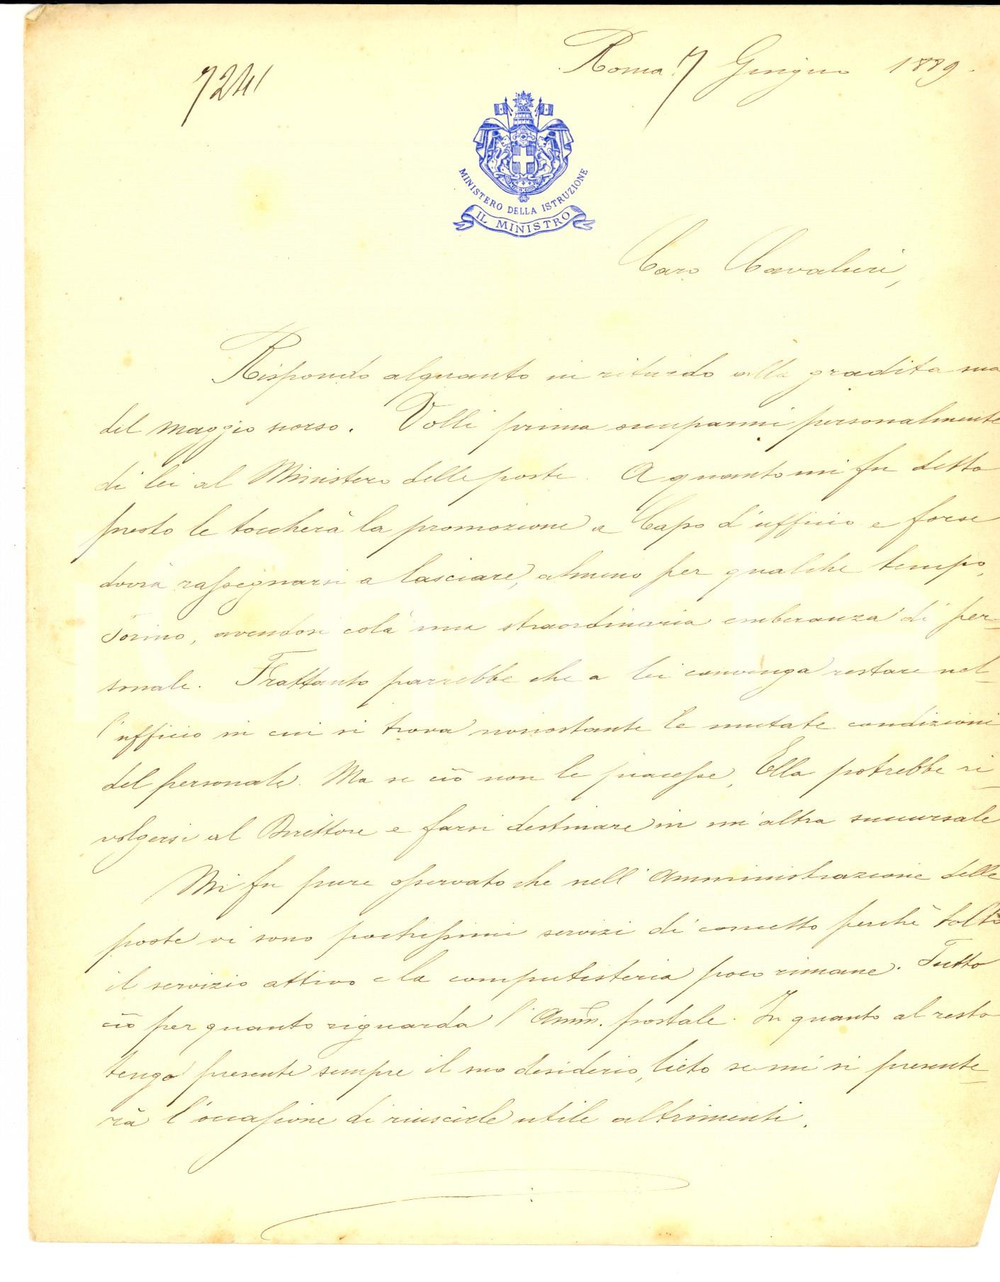 Roma 7 Giugno 1889.
7241
MINISTERO DELLA ISTRUZIONE
IL MINISTRO
Caro Cavaleri,
Rispondo alquanto in ritardo alla gradita sua
del maggio scorso. Volli prima occuparmi personalmente
di lei al Ministero delle poste. A quanto mi fu detto
presto le toccherà la promozione a Capo d'ufficio e forse
dovrà rassegnarsi a lasciare, almeno per qualche tempo,
Torino, avendosi colà una straordinaria emberanza di per-
sonale. Frattanto parrebbe che a lei convenga restare nel-
l'ufficio in cui si trova nonostante le mutate condizioni
del personale. Ma se ciò non le piacesse, Ella potrebbe ri-
volgersi al Direttore e farsi destinare in un'altra succursale
Mi fu pure osservato che nell'Amministrazione delle
poste vi sono pochissimi servizi di concetto perchè tolti
il servizio attivo e la computisteria poco rimane. Tutto
ciò per quanto riguarda l'Amm. postale. In quanto al resto
tengo presente sempre il suo desiderio, lieto se mi si presente-
rà l'occasione di riuscirle utile altrimenti.
iCharta